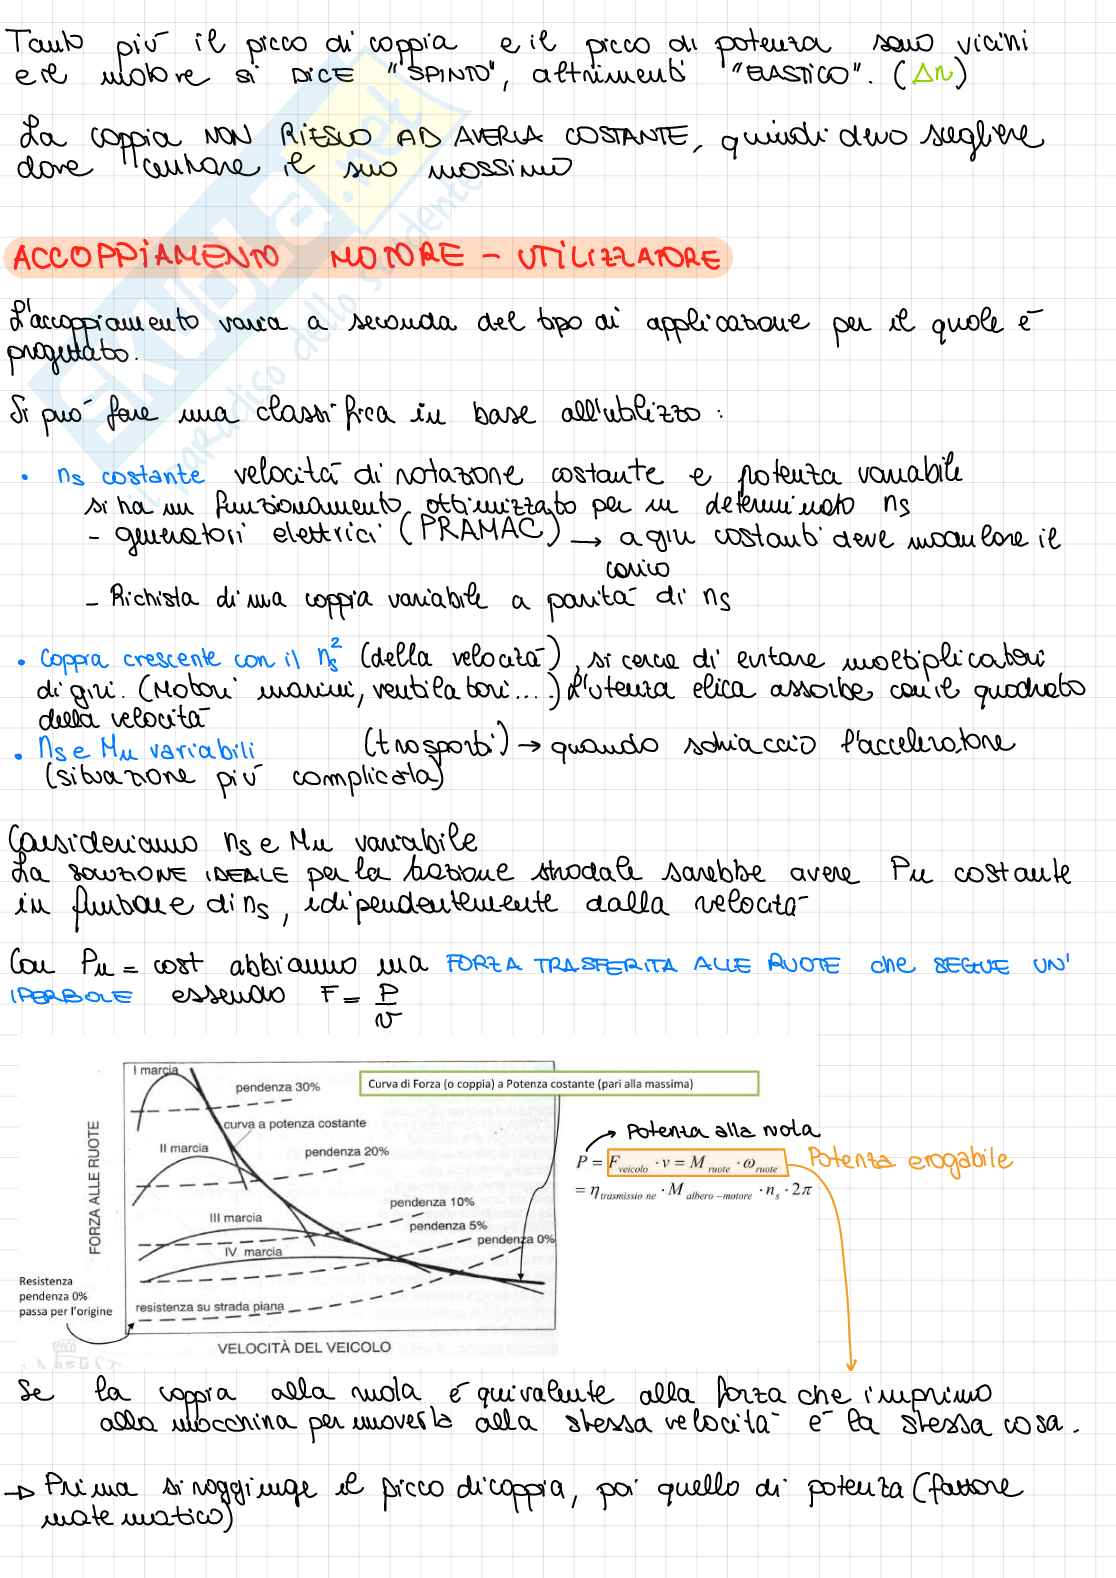 Tanto più il picco di coppia e il picco di potenza sono vicini
e il motore si DICE "SPINTO", altrimenti "ELASTICO". (Δn)
La coppia NON RIESCO AD AVERLA COSTANTE, quindi devo scegliere
dove centrare il suo massimo
ACCOPPIAMENTO MOTORE - UTILIZZATORE
L'accoppiamento varia a seconda del tipo di applicazione per il quale è
progettato.
Si può fare una classifica in base all'utilizzo:
• ns costante velocità di rotazione costante e potenza variabile
si ha un funzionamento ottimizzato per un determinato ns
- generatori elettrici (PRAMAC) → a giri costanti deve modulare il
carico
- Richista di una coppia variabile a parità di ns
• Coppia crescente con il ns² (della velocità), si cerca di evitare moltiplicatori
di giri. (Motori marini, ventilatori...) L'utenza elica assorbe con il quadrato
della velocità
• ns e Mu variabili (trasporti) → quando schiaccio l'acceleratore
(situazione più complicata)
Consideriamo ns e Mu variabile
La SOLUZIONE IDEALE per la trazione stradale sarebbe avere Pu costante
in funzione di ns, idipendentemente dalla velocità
Con Pu = cost abbiamo una FORZA TRASFERITA ALLE RUOTE che SEGUE UN'
IPERBOLE essendo F = P/v
I marcia
pendenza 30%
Curva di Forza (o coppia) a Potenza costante (pari alla massima)
curva a potenza costante
II marcia
pendenza 20%
III marcia
pendenza 10%
pendenza 5%
IV marcia
pendenza 0%
FORZA ALLE RUOTE
Resistenza
pendenza 0%
passa per l'origine
resistenza su strada piana
VELOCITÀ DEL VEICOLO
Potenza alla ruota
P = F veicolo · v = M ruote · ω ruote
Potenza erogabile
= η trasmissio ne · M albero-motore · n s · 2π
Se la coppia alla ruota è quivalente alla forza che imprimo
alla macchina per muoverla alla stessa velocità è la stessa cosa.
→ Prima si raggiunge il picco di coppia, poi quello di potenza (fattore
matematico)
SKUOLA.net
il paradiso dello studente